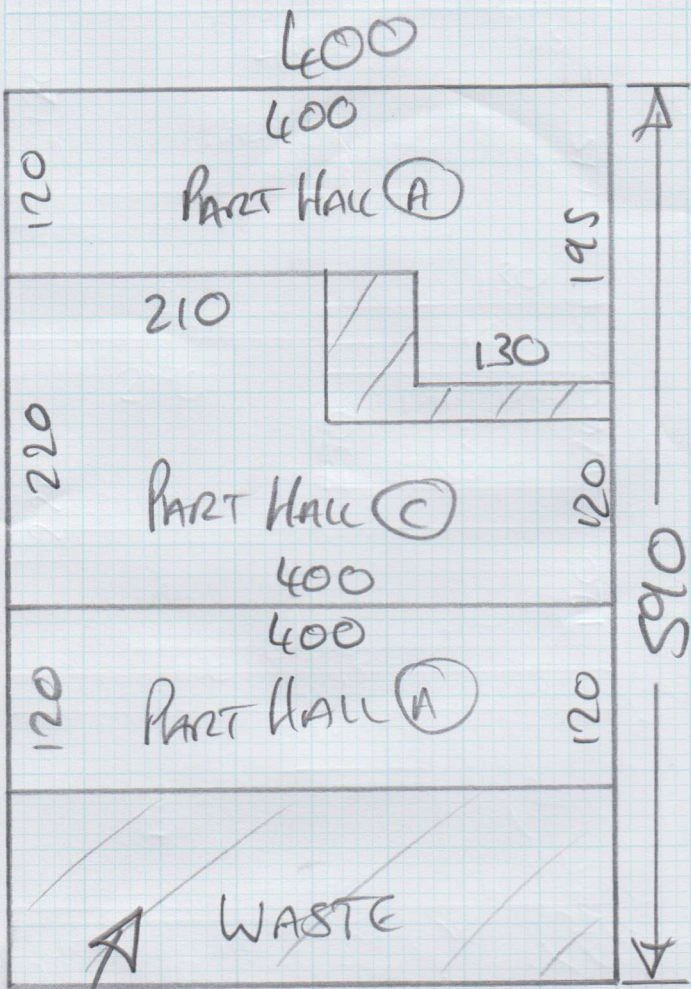 400
400
120
PART HALL A
195
210
130
220
PART HALL C
120
400
400
590
120
PART HALL A
120
WASTE